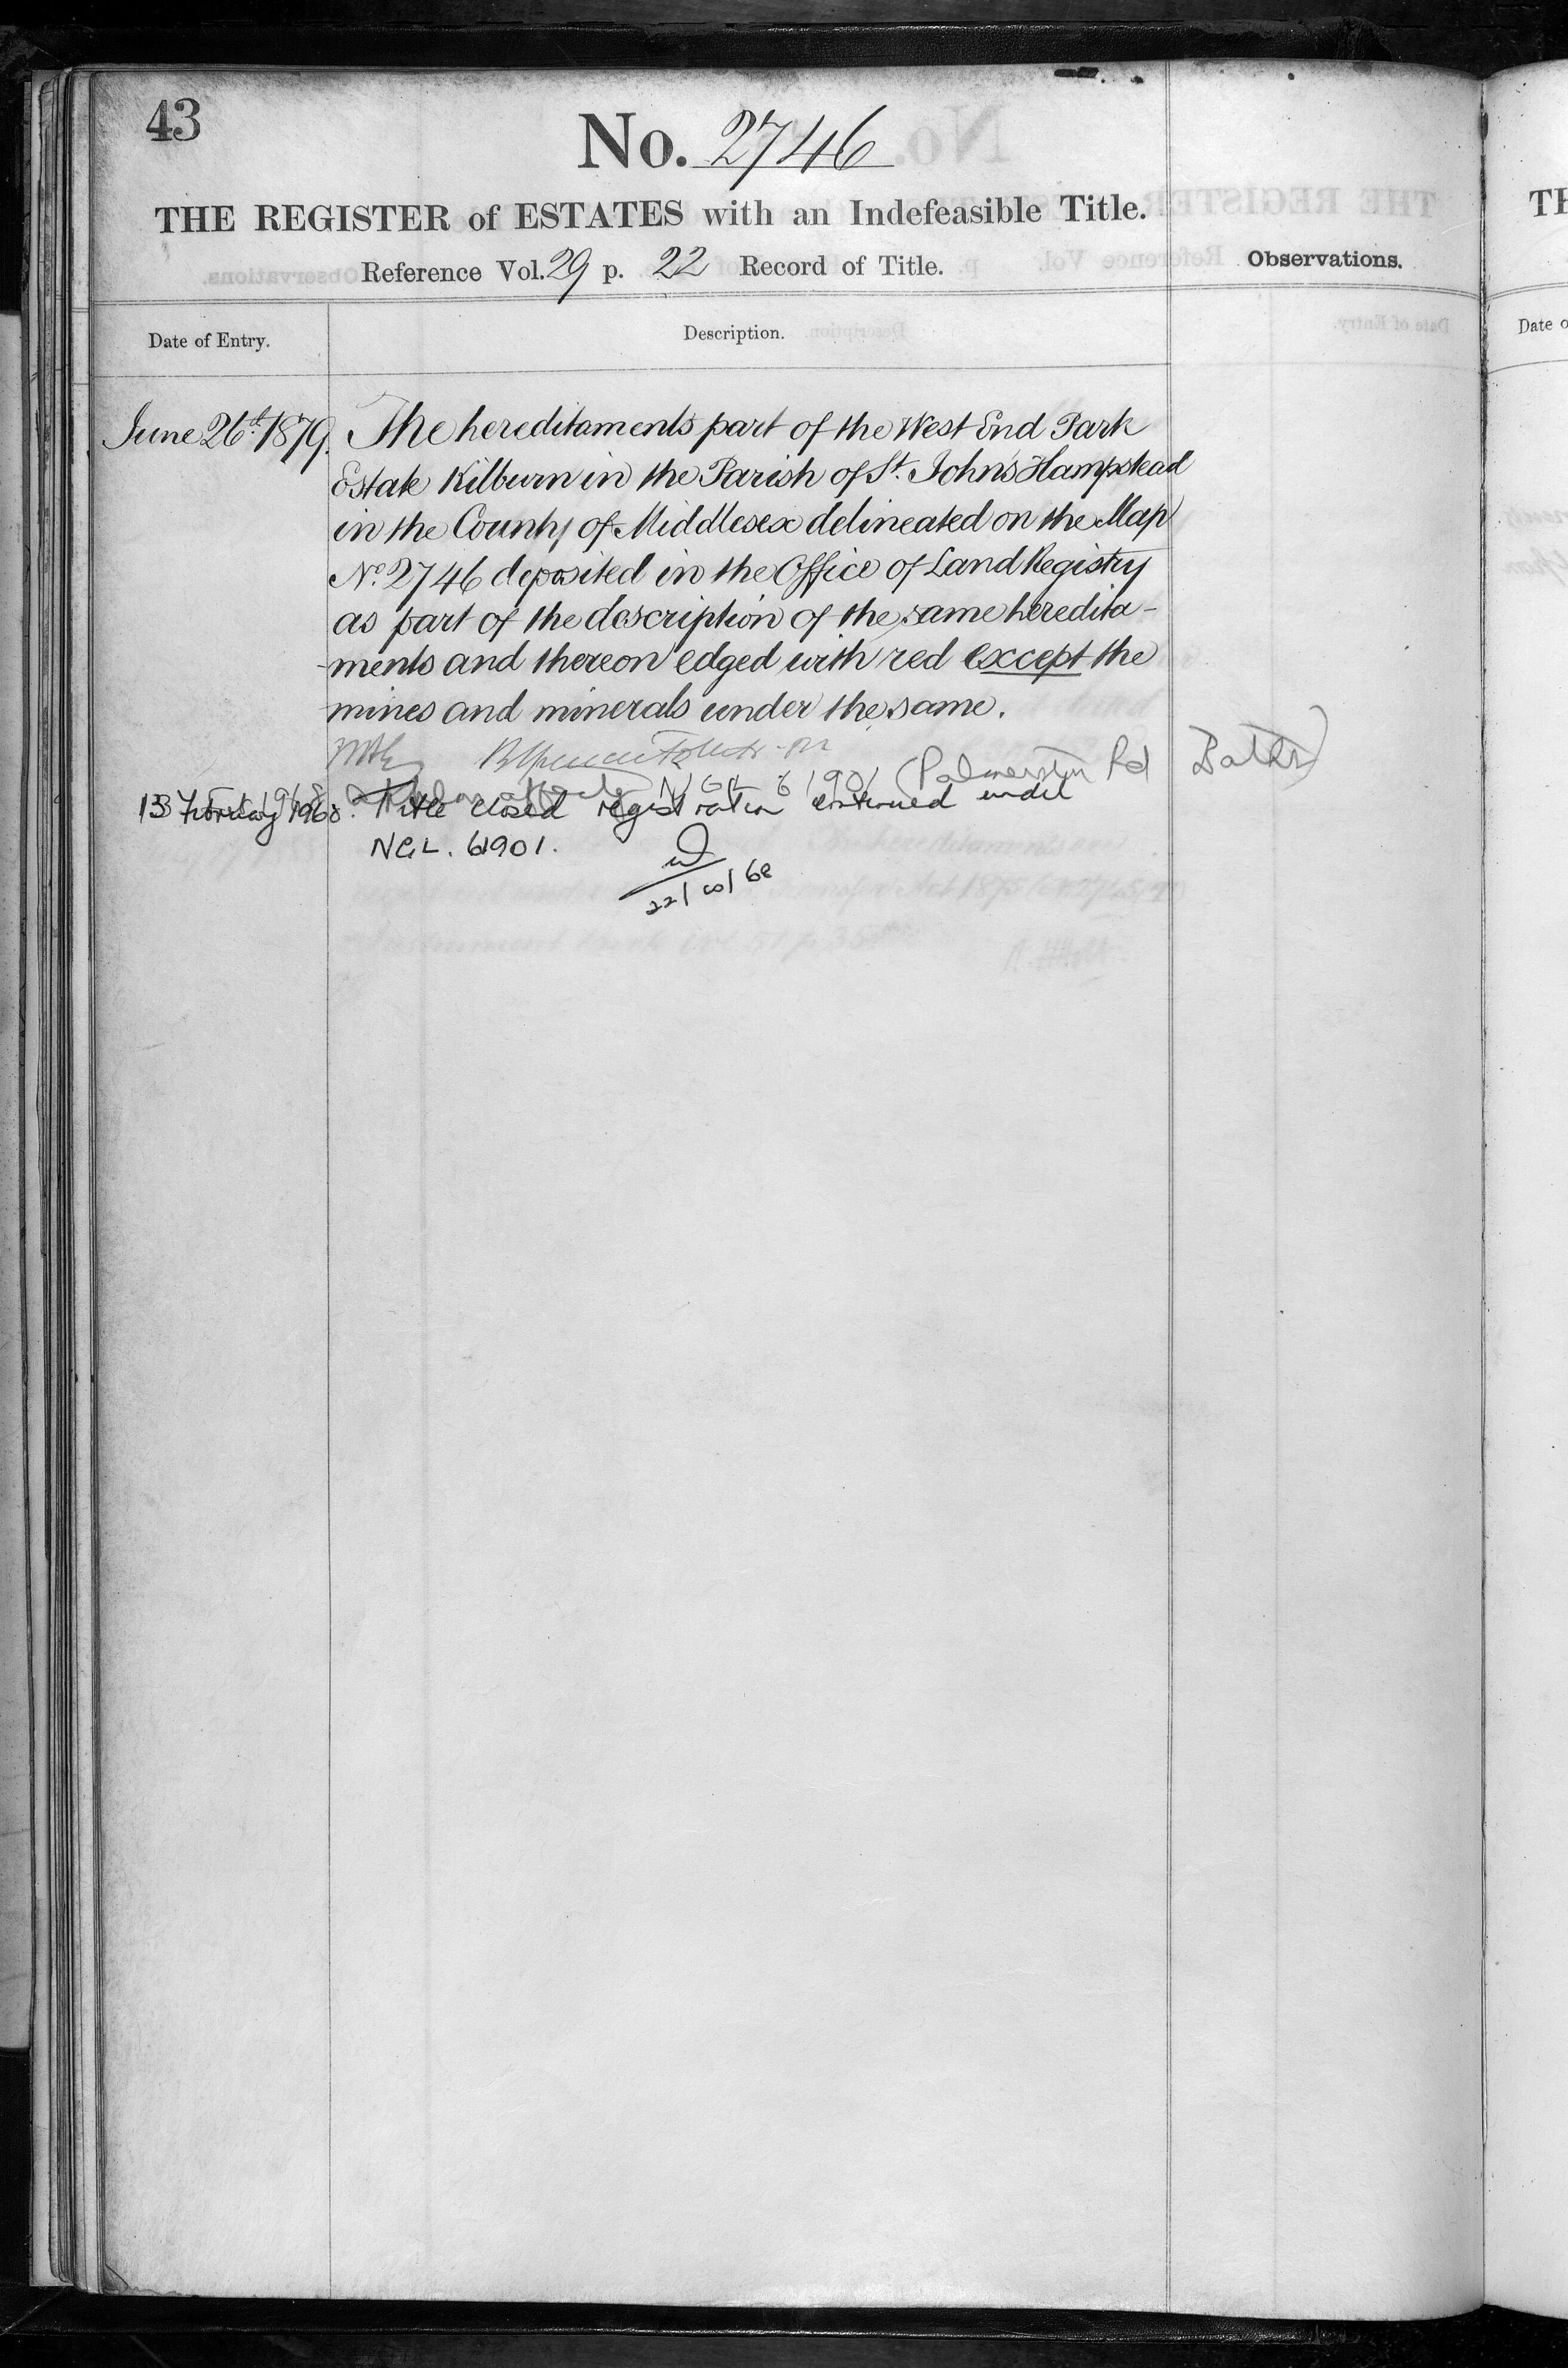 43
No. 2746
THE REGISTER of ESTATES with an Indefeasible Title.
Reference Vol. 29 p. 22 Record of Title.
Observations.
Date of Entry.
Description.
June 26th 1879. The hereditaments part of the West End Park
Estate Kilburn in the Parish of St. John's Hampstead
in the County of Middlesex delineated on the Map
No. 2746 deposited in the Office of Land Registry
as part of the description of the same heredita-
-ments and thereon edged with red except the
mines and minerals under the same.
(Palmerston Rd Baths)
13 February 1968. Title closed registration continued under
NGL. 61901.
TH
Date o